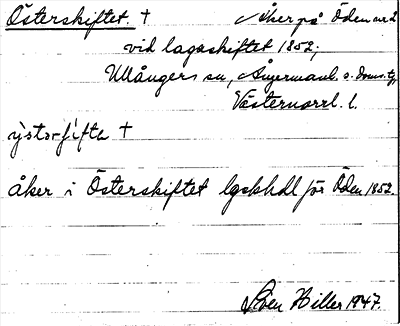 Österskiftet. † Åker på Öden nr 2
vid lagaskiftet 1852,
Ullångers sn, Ångermanl. s. doms.,
Västernorrl. l.
†
åker i Österskiftet lgskhdl för Öden 1852.
Sven Hiller 1947.